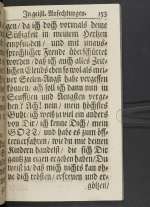 In geistl. Anfechtungen. 153
gen/ da ich doch vormals deine
Süßigkeit in meinem Hertzen
empfunden/ und mit unaus-
sprechlicher Freude überschüttet
worden/ daß ich auch alles Zeit-
lichen Elends eben so wol als mei-
ner Seelen-Angst habe vergessen
können; ich soll ich dann nun in
Seufftzen und Aengsten verge-
hen? Ach! nein/ mein höchstes
Gut; ich weiß ja viel ein anders
von Dir; ich kenne Dich/ mein
GOTT/ und habe es zum öff-
tern erfahren/ wie du mit deinen
Kindern handelst/ die sich Dir
gantz zu eigen ergeben haben/ Du
weist ja daß mich nichts auf oh-
ne dich trösten/ erfreuen und er-
götzen/